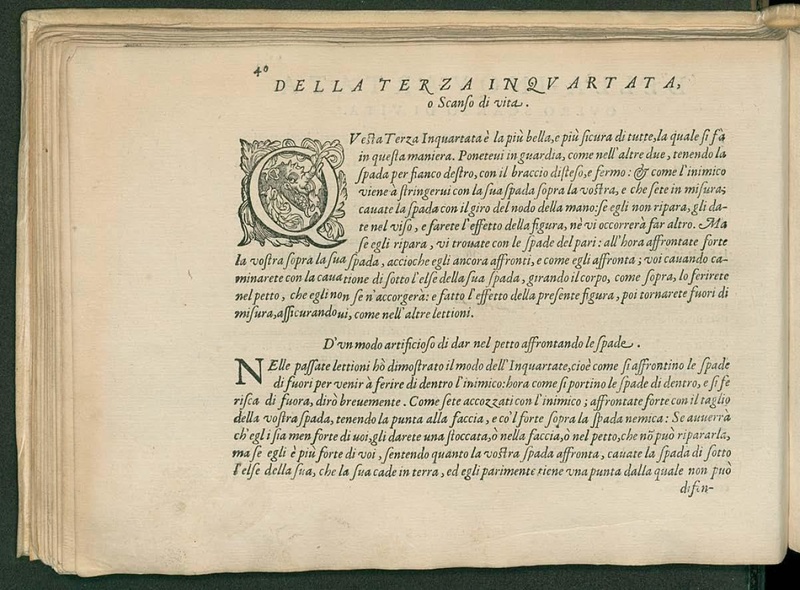 40
DELLA TERZA INQVARTATA,
o Scanſo di vita.
QVeſta Terza Inquartata è la più bella, e più ſicura di tutte, la quale ſi fà
in queſta maniera. Poneteui in guardia, come nell'altre due, tenendo la
ſpada per fianco deſtro, con il braccio diſteſo, e fermo: & come l'inimico
viene à ſtringerui con la ſua ſpada ſopra la voſtra, e che ſete in miſura;
cauate la ſpada con il giro del nodo della mano: ſe egli non ripara, gli da-
te nel viſo, e farete l'effetto della figura, nè vi occorrerà far altro. Ma
ſe egli ripara, vi trouate con le ſpade del pari: all'hora affrontate forte
la voſtra ſopra la ſua ſpada, accioche egli ancora affronti, e come egli affronta; voi cauando ca-
minarete con la cauatione di ſotto l'elſe della ſua ſpada, girando il corpo, come ſopra, lo ferirete
nel petto, che egli non ſe n'accorgerà: e fatto l'effetto della preſente figura, poi tornarete fuori di
miſura, aſſicurandoui, come nell'altre lettioni.
D'vn modo artificioſo di dar nel petto affrontando le ſpade.
NElle paſſate lettioni hò dimoſtrato il modo dell'Inquartate, cioè come ſi affrontino le ſpade
di fuori per venir à ferire di dentro l'inimico: hora come ſi portino le ſpade di dentro, e ſi fe
riſca di fuora, dirò breuemente. Come ſete accozzati con l'inimico; affrontate forte con il taglio
della voſtra ſpada, tenendo la punta alla faccia, e co'l forte ſopra la ſpada nemica: Se auuerrà
ch'egli ſia men forte di uoi, gli darete una ſtoccata, ò nella faccia, ò nel petto, che nõ può ripararla,
ma ſe egli è più forte di voi, ſentendo quanto la voſtra ſpada affronta, cauate la ſpada di ſotto
l'elſe della ſua, che la ſua cade in terra, ed egli parimente tiene vna punta dalla quale non può
difen-